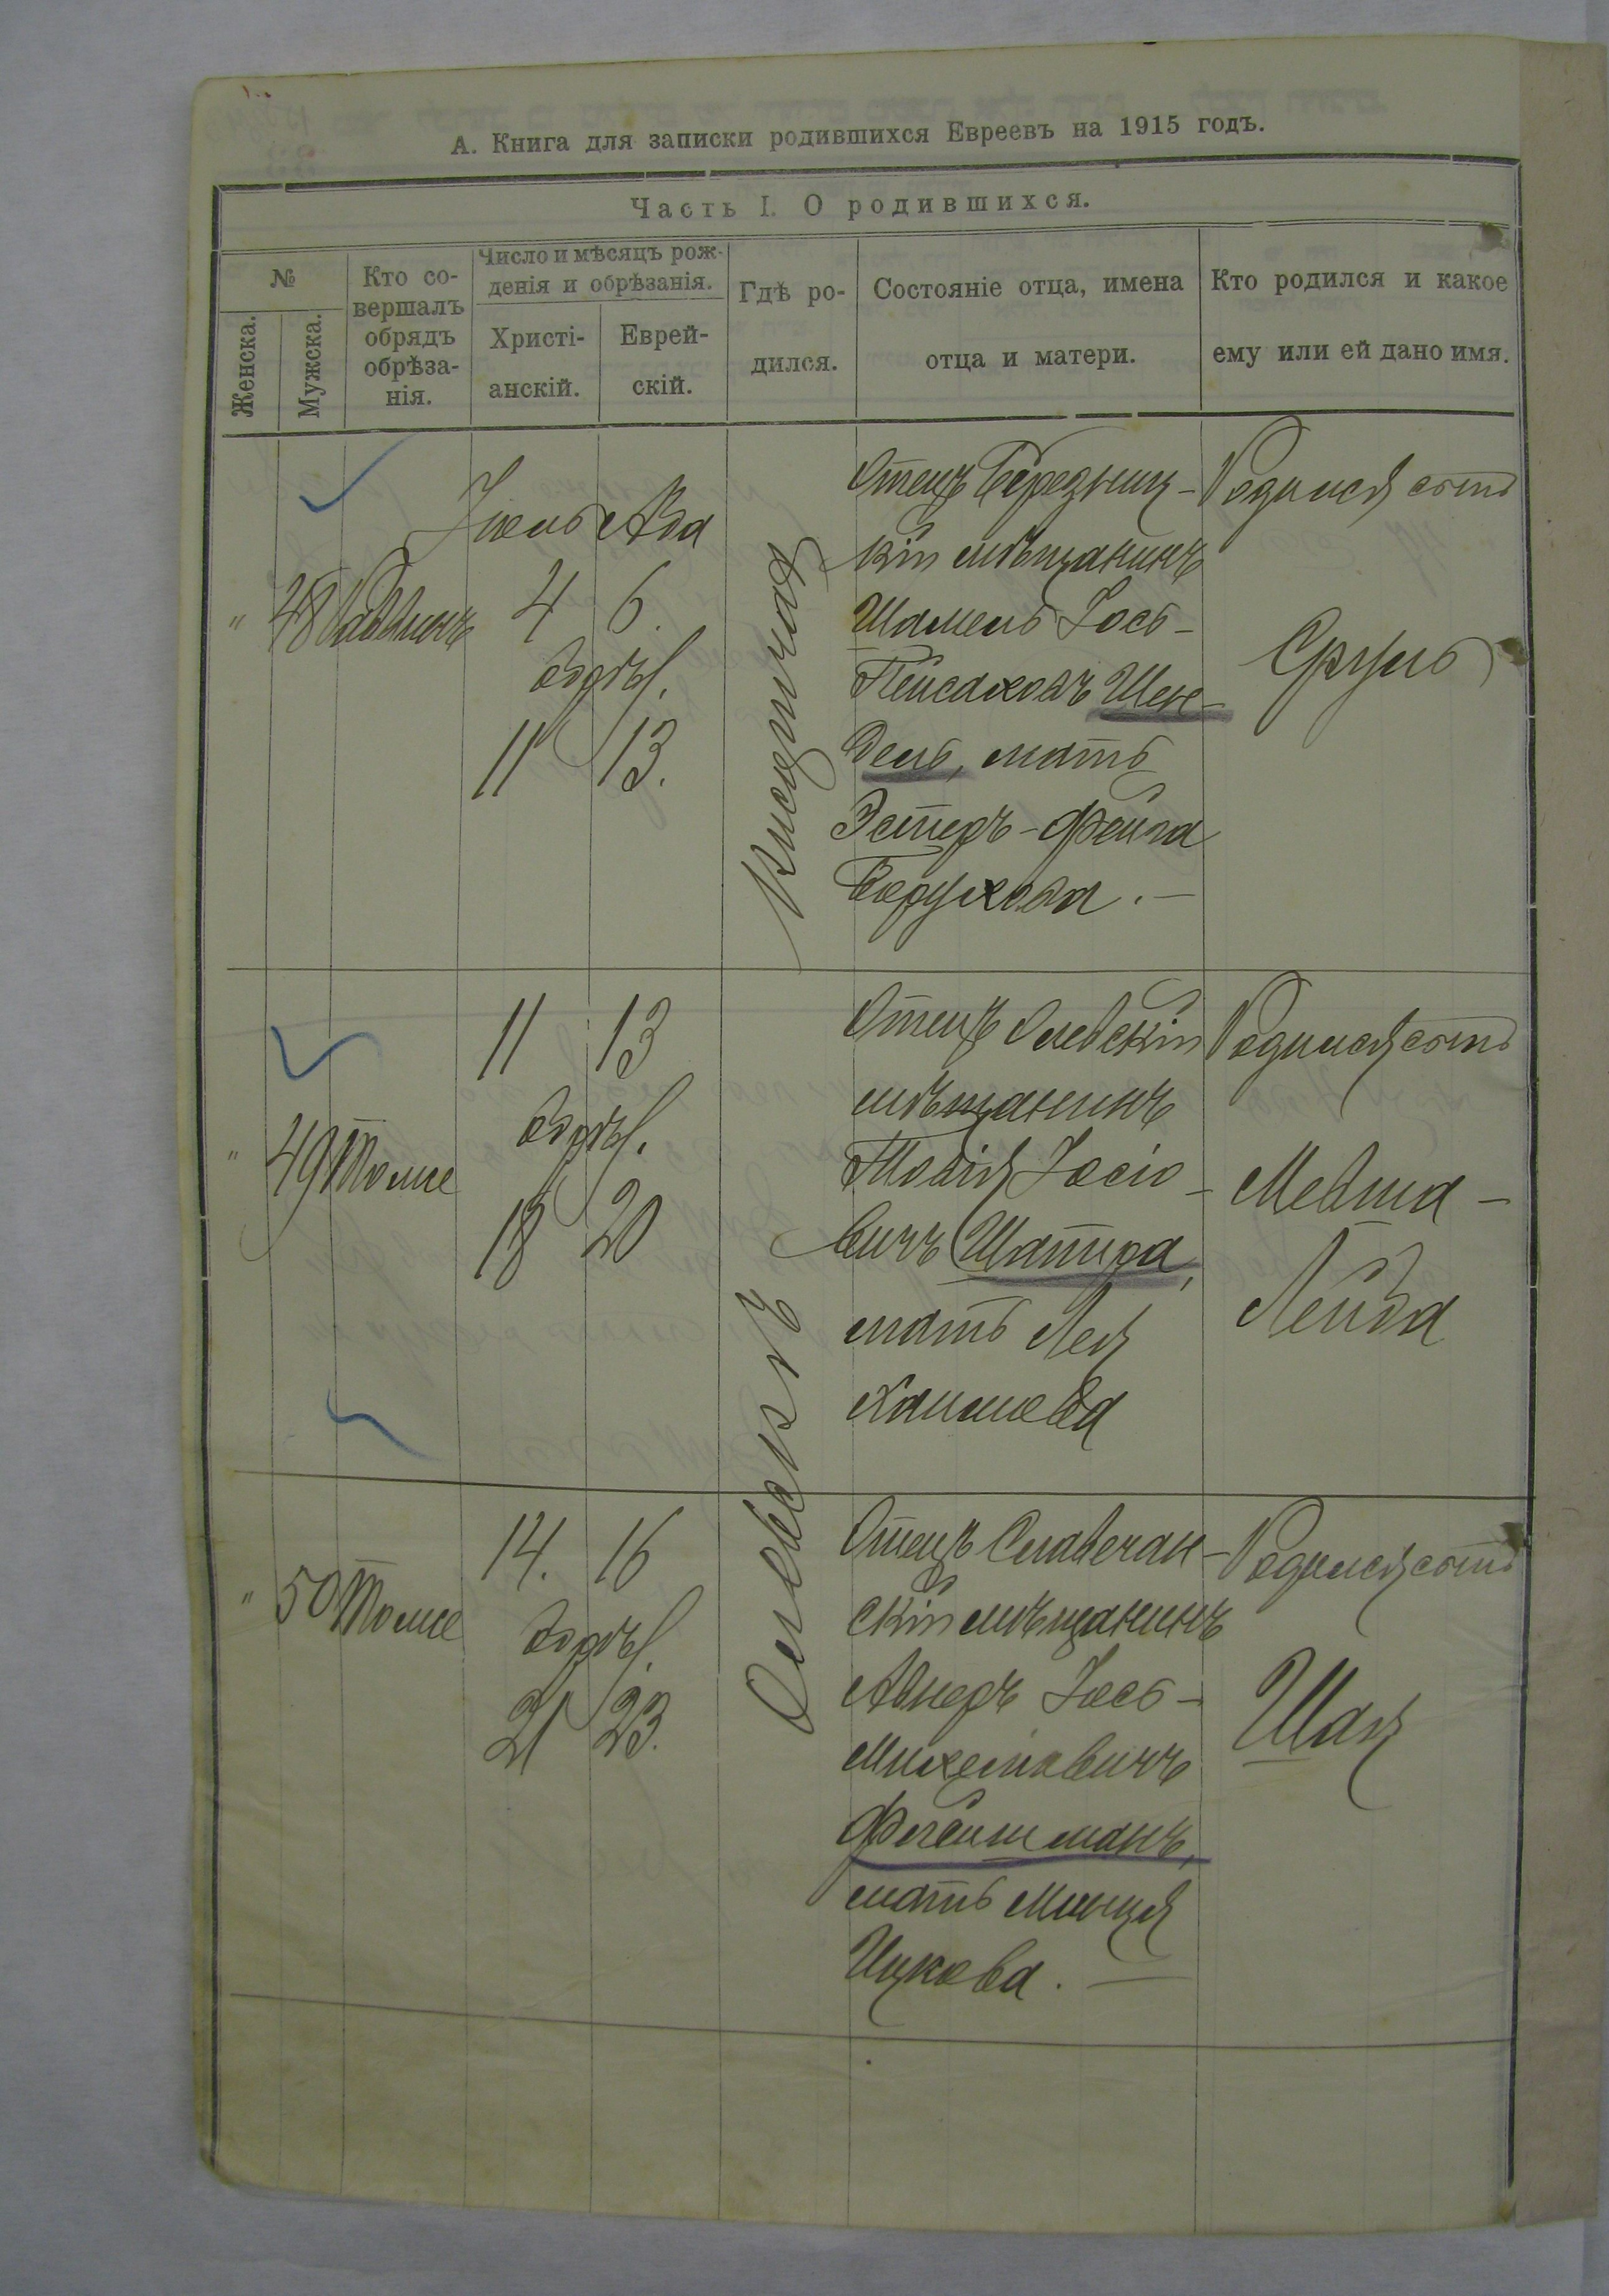 А. Книга для записки родившихся Евреевъ на 1915 годъ.
Часть I. О родившихся.
№
Женска.
Мужска.
Кто со-
вершалъ
обрядъ
обрѣза-
нія.
Число и мѣсяцъ рож-
денія и обрѣзанія.
Христі-
анскій.
Еврей-
скій.
Гдѣ ро-
дился.
Состояніе отца, имена
отца и матери.
Кто родился и какое
ему или ей дано имя.
" 48 Раввинъ
Іюль Ава
4 6.
обрѣз.
11 13.
Отецъ Березниц-
кій мѣщанинъ
Шамель Іось-
Пейсаховъ Шен-
дель, мать
Эстеръ-Фейга
Борухова. —
Родился сынъ
Сруль
" 49 Тоже
11 13
обрѣз.
18 20
Олевскъ
Отецъ Олевскій
мѣщанинъ
Товія Іосіо-
вичъ Шапира,
мать Лея
Хаимова
Родился сынъ
Мевша-
Лейба
" 50 Тоже
14. 16
обрѣз.
21 23.
Отецъ Славечан-
скій мѣщанинъ
Авнеръ Іось-
Михелiовичъ
Флейшманъ,
мать Минця
Ицкова. —
Родился сынъ
Шая